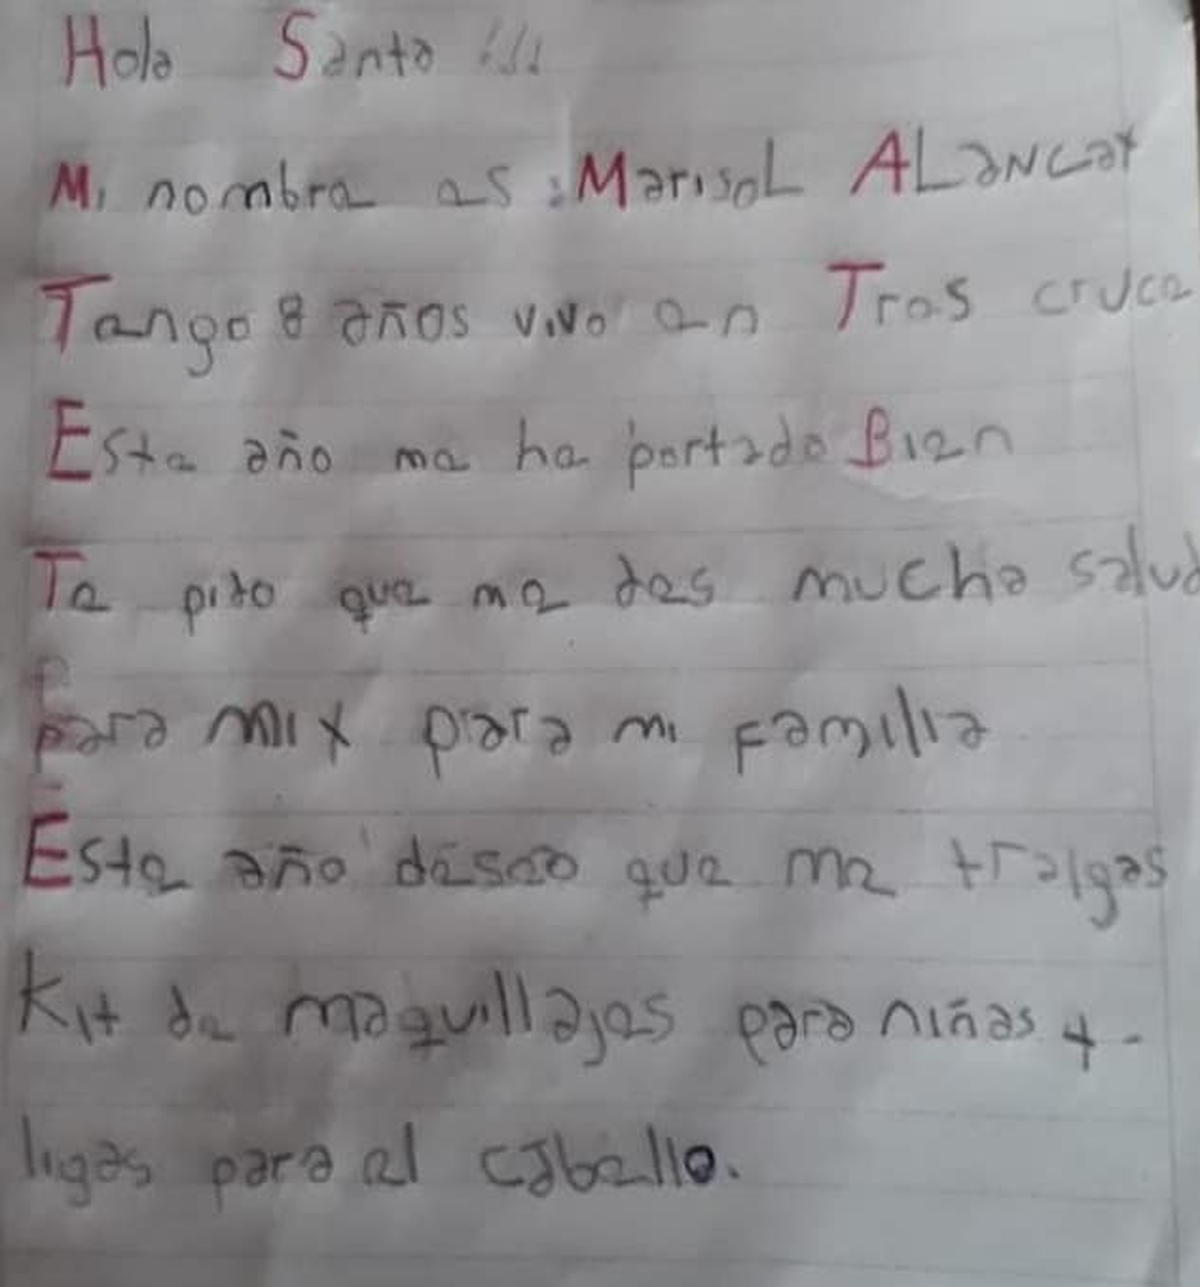 Hola Santa !!!
Mi nombre es : Marisol ALANCAY
Tengo 8 años vivo en Tres cruce
Este año me he portado Bien
Te pido que me des mucha salud
Para mi x para mi Familia
Este año deseo que me traigas
Kit de maquillajes para niñas y -
ligas para el caballo.